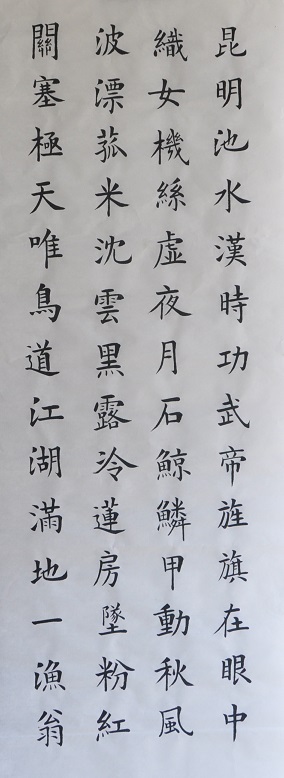 昆明池水漢時功武帝旌旗在眼中
織女機絲虛夜月石鯨鱗甲動秋風
波漂菰米沈雲黑露冷蓮房墜粉紅
關塞極天唯鳥道江湖滿地一漁翁